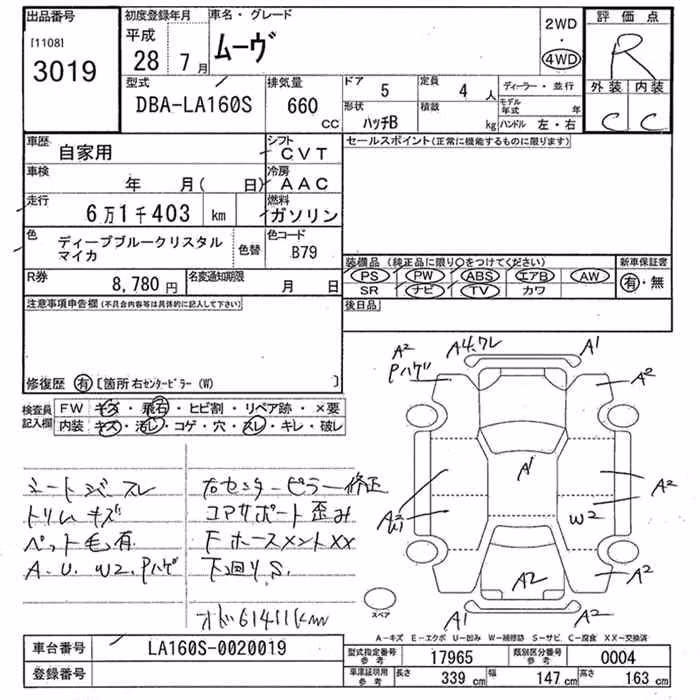 出品番号
[1108]
3019
初度登録年月
平成
28 7 月
車名・グレード
ムーヴ
2WD
・
4WD
評価点
R
外装 内装
C C
型式
DBA-LA160S
排気量
660
CC
ドア 5
定員 4 人
形状 ハッチB
積載 kg
ディーラー・並行
モデル年式 年
ハンドル 左・右
車歴
自家用
シフト
CVT
車検
年 月( 日)
冷房
AAC
走行
6万1千403 km
燃料
ガソリン
色
ディープブルークリスタル
マイカ
色替
色コード
B79
R券
8,780 円
名変通知期限
月 日
セールスポイント(正常に機能するものに限ります)
装備品 (純正品に限り〇をつけてください)
PS PW ABS エアB AW
SR ナビ TV カワ
新車保証書
有・無
後日品
注意事項申告欄(不具合内容等は具体的に記入して下さい)
修復歴 有 [箇所 右センターピラー (W) ]
検査員
記入欄
FW キズ・飛石・ヒビ割・リペア跡・×要
内装 キズ・汚レ・コゲ・穴・スレ・キレ・破レ
シートジミ・スレ
トリムキズ
ペット毛有
A.U.W2.Pハゲ
右センターピラー修正
コアサポート歪み
Fホースメントxx
下廻りS.
オド61411km
A2
Pハゲ
A4.ワレ
A1
A2
A1
A2
A2
W2
A2
A2
A1
A2
スペア
A-キズ E-エクボ U-凹み W-補修跡 S-サビ C-腐食 XX-交換済
車台番号
LA160S-0020019
登録番号
型式指定番号
参考
17965
類別区分番号
参考
0004
車検証明用
参考
長さ 339 cm
幅 147 cm
高さ 163 cm